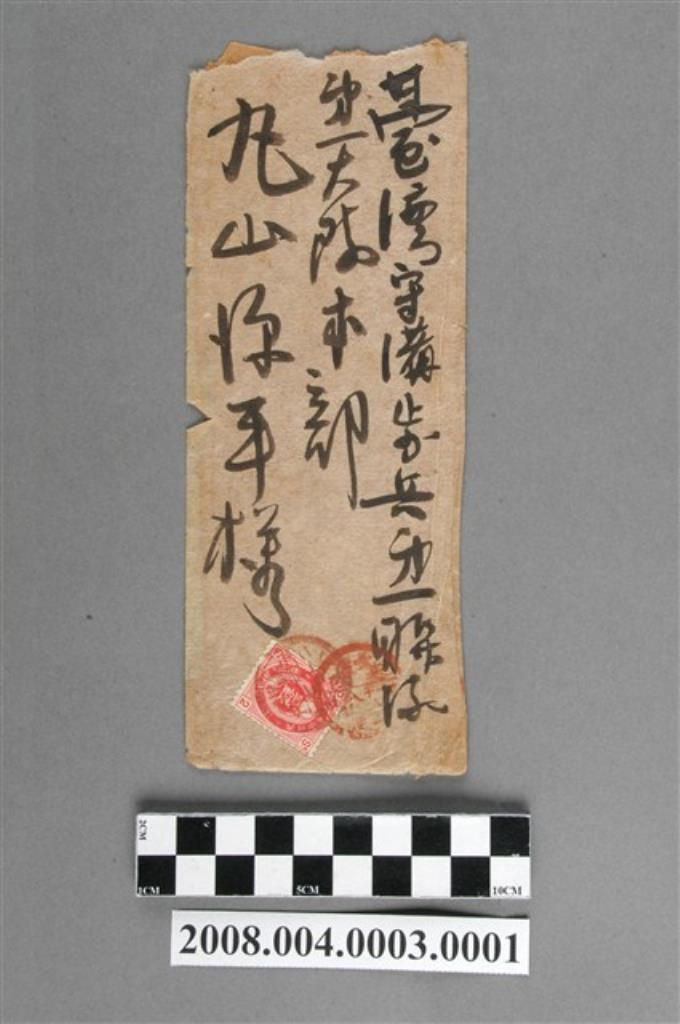 臺灣守備步兵第一聯隊
第一大隊本部
丸山源平様
2CM
1CM
5CM
10CM
2008.004.0003.0001